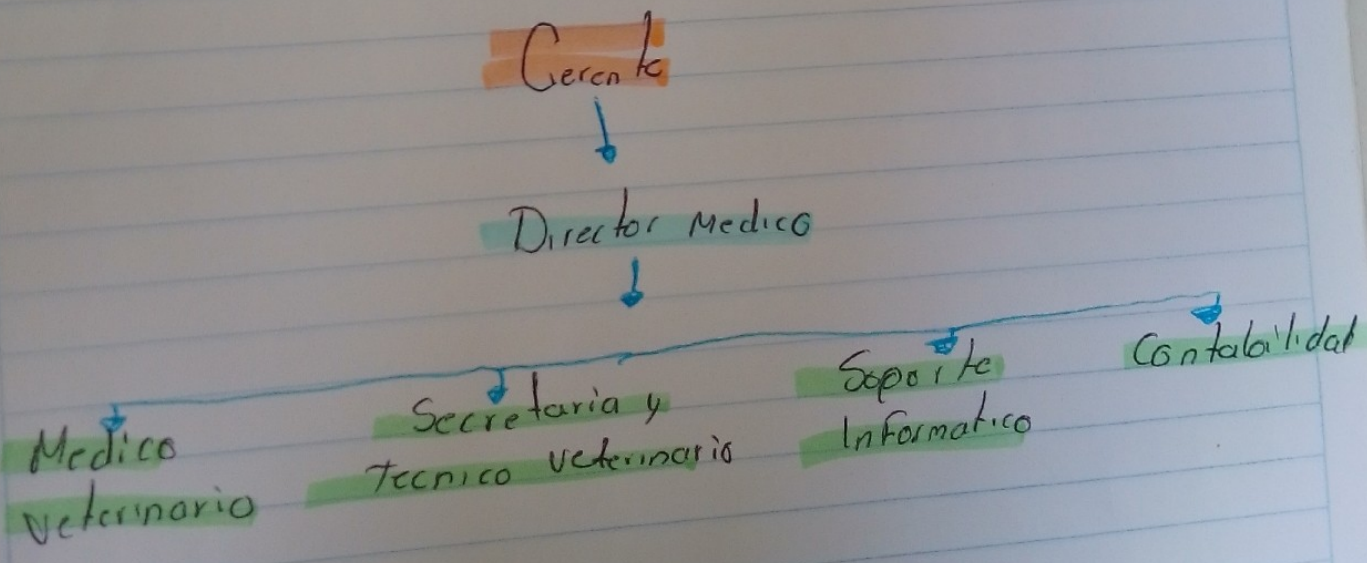 Gerente
Director Medico
Medico
veterinario
Secretaria y
Tecnico veterinario
Soporte
Informatico
Contabilidad